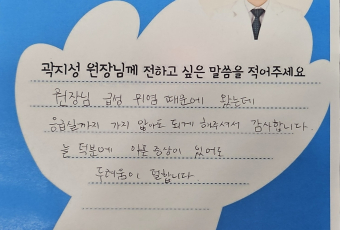 곽지성 원장님께 전하고 싶은 말씀을 적어주세요
원장님 급성 위염 때문에 왔는데
응급실까지 가지 않아도 되게 해주셔서 감사합니다
늘 덕분에 아픈 증상이 있어도
두려움이 덜합니다